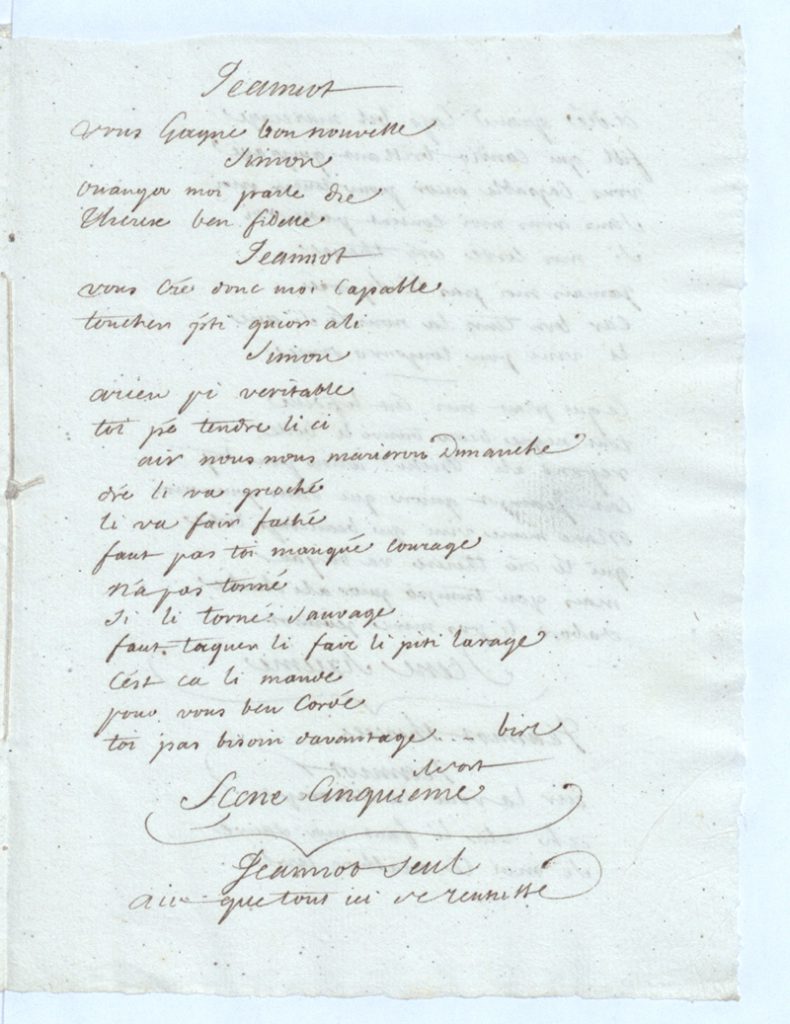 Jeannot
vous Gagné bon nouvelle
Simon
ouanga moi parlé dié
Therese ben fidelle
Jeannot
vous Cré donc moi Capable
toucher piti quior a li
Simon
arien pi veritable
toi pé tendre li ci
air nous nous marieron Dimanche
dré li va groché
li va fair faché
faut pas toi manqué courage
n'a pas tonné
Si li torné Sauvage
faut taquer li fair li piti lavage
C'ést ca li mandé
pour vous ben Cordé
toi pas bisoin davantage .. bis
il sort
Scene Cinquieme
Jeannot Seul
air que tout ici se reunisse